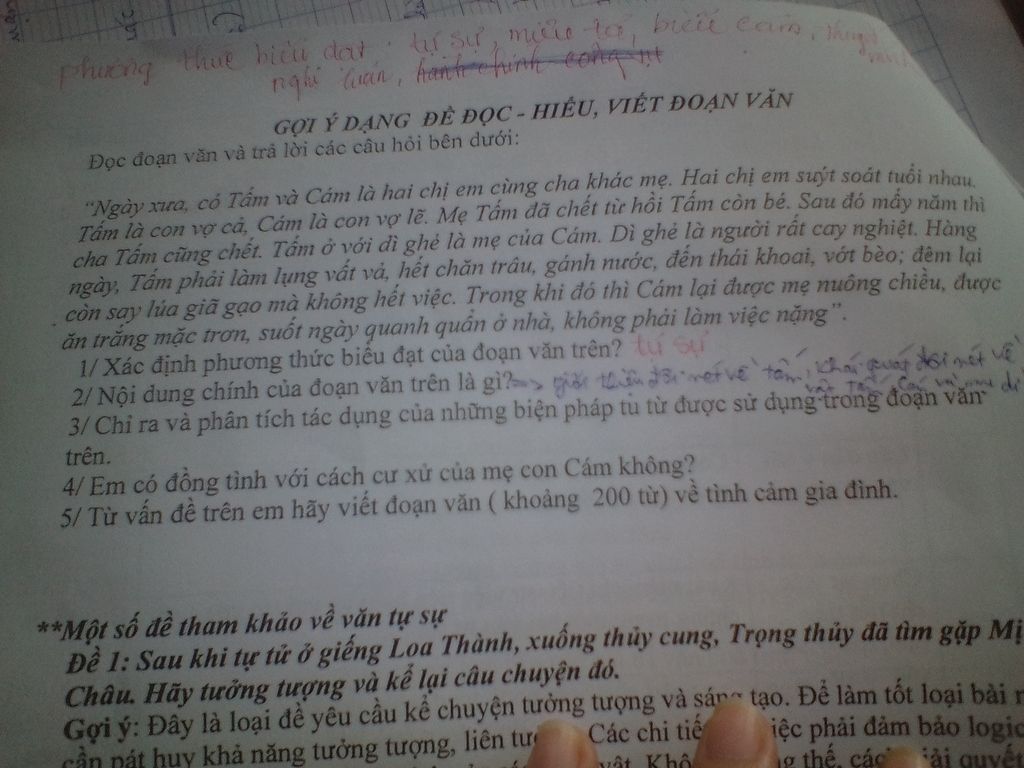 phương thức biểu đạt: tự sự, miêu tả, biểu cảm, thuyết minh
nghị luận, hành chính công vụ
GỢI Ý DẠNG ĐỀ ĐỌC - HIỂU, VIẾT ĐOẠN VĂN
Đọc đoạn văn và trả lời các câu hỏi bên dưới:
"Ngày xưa, có Tấm và Cám là hai chị em cùng cha khác mẹ. Hai chị em suýt soát tuổi nhau.
Tấm là con vợ cả, Cám là con vợ lẽ. Mẹ Tấm đã chết từ hồi Tấm còn bé. Sau đó mấy năm thì
cha Tấm cũng chết. Tấm ở với dì ghẻ là mẹ của Cám. Dì ghẻ là người rất cay nghiệt. Hàng
ngày, Tấm phải làm lụng vất vả, hết chăn trâu, gánh nước, đến thái khoai, vớt bèo; đêm lại
còn say lúa giã gạo mà không hết việc. Trong khi đó thì Cám lại được mẹ nuông chiều, được
ăn trắng mặc trơn, suốt ngày quanh quẩn ở nhà, không phải làm việc nặng".
1/ Xác định phương thức biểu đạt của đoạn văn trên? tự sự
2/ Nội dung chính của đoạn văn trên là gì? => giới thiệu đôi nét về tấm, khái quát đôi nét về
3/ Chỉ ra và phân tích tác dụng của những biện pháp tu từ được sử dụng trong đoạn văn
trên.
4/ Em có đồng tình với cách cư xử của mẹ con Cám không?
5/ Từ vấn đề trên em hãy viết đoạn văn ( khoảng 200 từ) về tình cảm gia đình.
**Một số đề tham khảo về văn tự sự
Đề 1: Sau khi tự tử ở giếng Loa Thành, xuống thủy cung, Trọng thủy đã tìm gặp Mị
Châu. Hãy tưởng tượng và kể lại câu chuyện đó.
Gợi ý: Đây là loại đề yêu cầu kể chuyện tưởng tượng và sáng tạo. Để làm tốt loại bài
cần pát huy khả năng tưởng tượng, liên Các chi phải đảm bảo logic